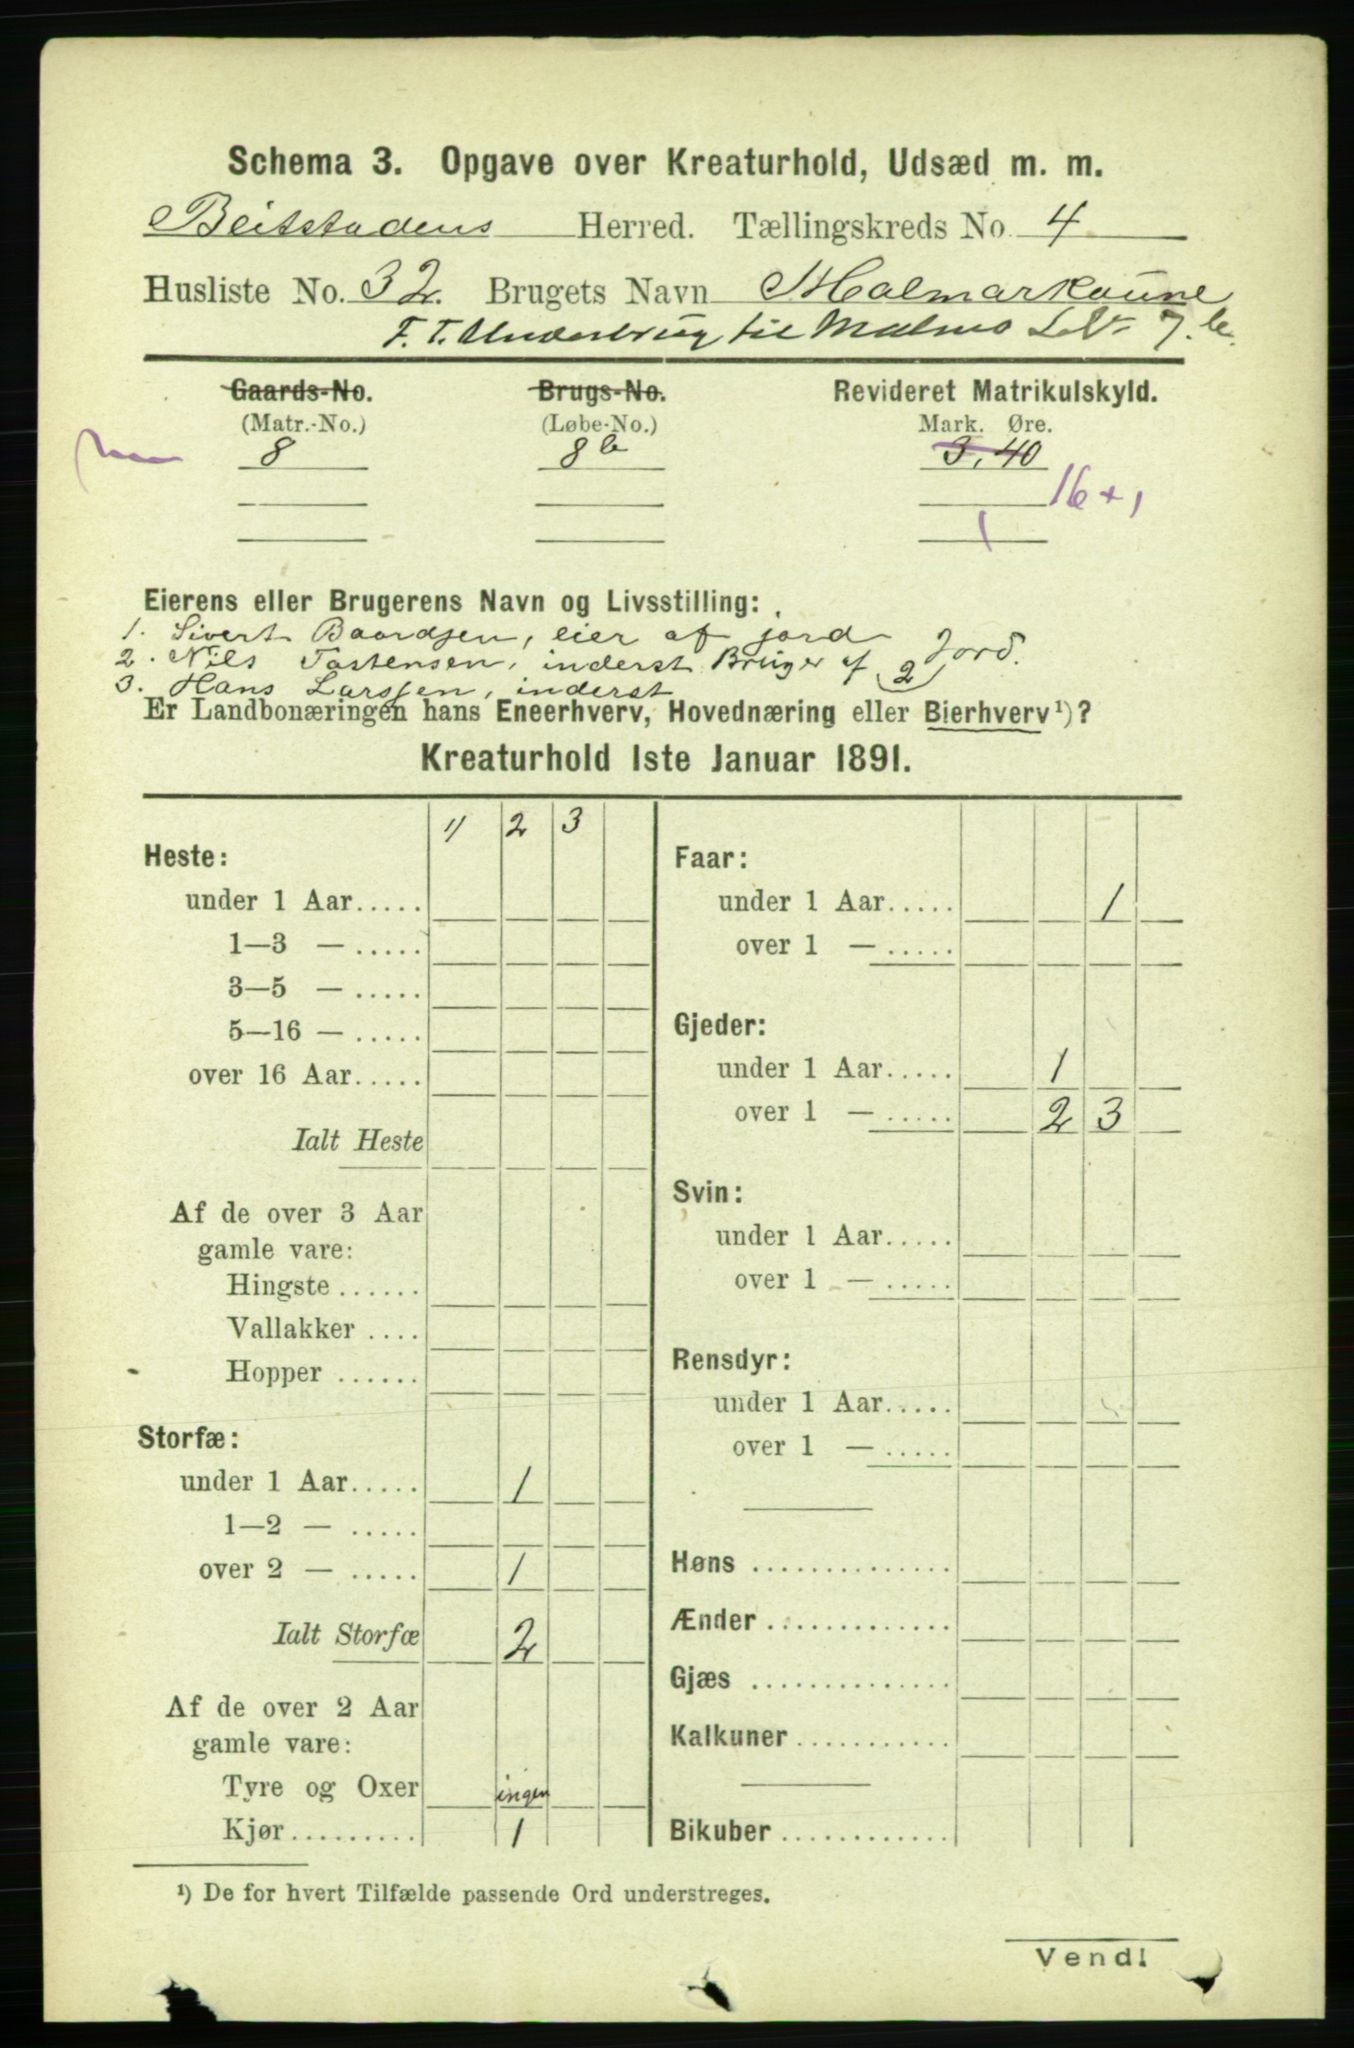 Schema 3. Opgave over Kreaturhold, Udsæd m. m.
Beitstadens Herred. Tællingskreds No. 4
Husliste No. 32. Brugets Navn Malmarkaune
F. T. Underbrug til Malmo L.N- 7.b.
Gaards-No. Brugs-No. Revideret Matrikulskyld.
(Matr.-No.) (Løbe-No.) Mark. Øre.
8 8 b 3,40
16+1
1
Eierens eller Brugerens Navn og Livsstilling:
1. Sivert Baardsen, eier af jord
2. Nils Tostensen, inderst Bruger af 2 Jord.
3. Hans Larssen, inderst
Er Landbonæringen hans Eneerhverv, Hovednæring eller Bierhverv¹)?
Kreaturhold 1ste Januar 1891.
1) 2 3
Heste:
under 1 Aar.....
1—3 — .....
3—5 — .....
5—16 — .....
over 16 Aar.....
Ialt Heste
Af de over 3 Aar
gamle vare:
Hingste ......
Vallakker ....
Hopper ......
Storfæ:
under 1 Aar..... 1
1—2 — .....
over 2 — ..... 1
Ialt Storfæ 2
Af de over 2 Aar
gamle vare:
Tyre og Oxer ingen
Kjør......... 1
Faar:
under 1 Aar..... 1
over 1 — .....
Gjeder:
under 1 Aar..... 1
over 1 — ..... 2 3
Svin:
under 1 Aar.....
over 1 — .....
Rensdyr:
under 1 Aar.....
over 1 — .....
Høns ..............
Ænder .............
Gjæs ..............
Kalkuner ...........
Bikuber .............
¹) De for hvert Tilfælde passende Ord understreges.
Vend!